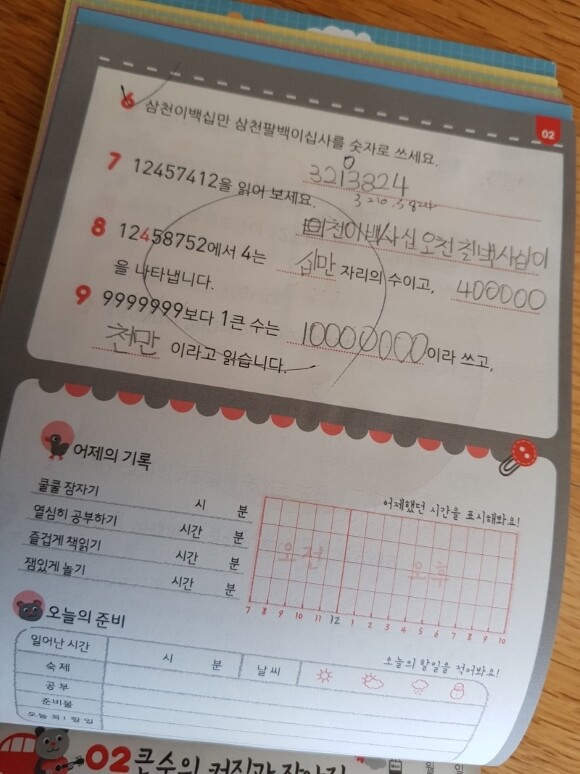 02
6 삼천이백십만 삼천팔백이십사를 숫자로 쓰세요.
3213824
0
3210.3824
7 12457412을 읽어 보세요.
천이백사십 오천 칠백사십이
8 12458752에서 4는 십만 자리의 수이고, 400000
을 나타냅니다.
9 9999999보다 1큰 수는 10000000이라 쓰고,
천만 이라고 읽습니다.
어제의 기록
쿨쿨 잠자기 시 분
열심히 공부하기 시간 분
즐겁게 책읽기 시간 분
잼있게 놀기 시간 분
어제했던 시간을 표시해봐요!
오전 오후
7 8 9 10 11 12 1 2 3 4 5 6 7 8 9 10
오늘의 준비
오늘의 할일을 적어봐요!
일어난 시간 시 분 날씨
숙제
공부
준비물
오늘 꼭! 할 일
02 큰 수의
월 일